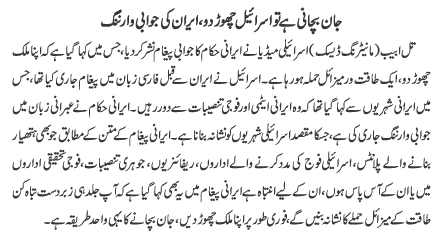 جان بچانی ہے تو اسرائیل چھوڑ دو، ایران کی جوابی وارننگ
تل ابیب (مانیٹرنگ ڈیسک) اسرائیلی میڈیا نے ایرانی حکام کا جوابی پیغام نشر کر دیا، جس میں کہا گیا ہے کہ اپنا ملک
چھوڑ دو، ایک طاقت ور میزائل حملہ ہو رہا ہے۔ اسرائیل نے ایران سے قبل فارسی زبان میں پیغام جاری کیا تھا، جس
میں ایرانی شہریوں سے کہا گیا تھا کہ وہ ایرانی ایٹمی اور فوجی تنصیبات سے دور رہیں۔ ایرانی حکام نے عبرانی زبان میں
جوابی وارننگ جاری کی ہے، جسکا مقصد اسرائیلی شہریوں کو نشانہ بنانا ہے۔ ایرانی پیغام کے متن کے مطابق جو بھی ہتھیار
بنانے والے پلانٹس، اسرائیلی فوج کی مدد کرنے والے اداروں، ریفائنریوں، جوہری تنصیبات، فوجی تحقیقی اداروں
میں یا ان کے آس پاس ہوں، ان کے لیے انتباہ ہے ایرانی پیغام میں یہ بھی کہا گیا ہے کہ آپ جلد ہی زبردست تباہ کن
طاقت کے میزائل حملے کا نشانہ بنیں گے، فوری طور پر اپنا ملک چھوڑ دیں، جان بچانے کا یہی واحد طریقہ ہے۔